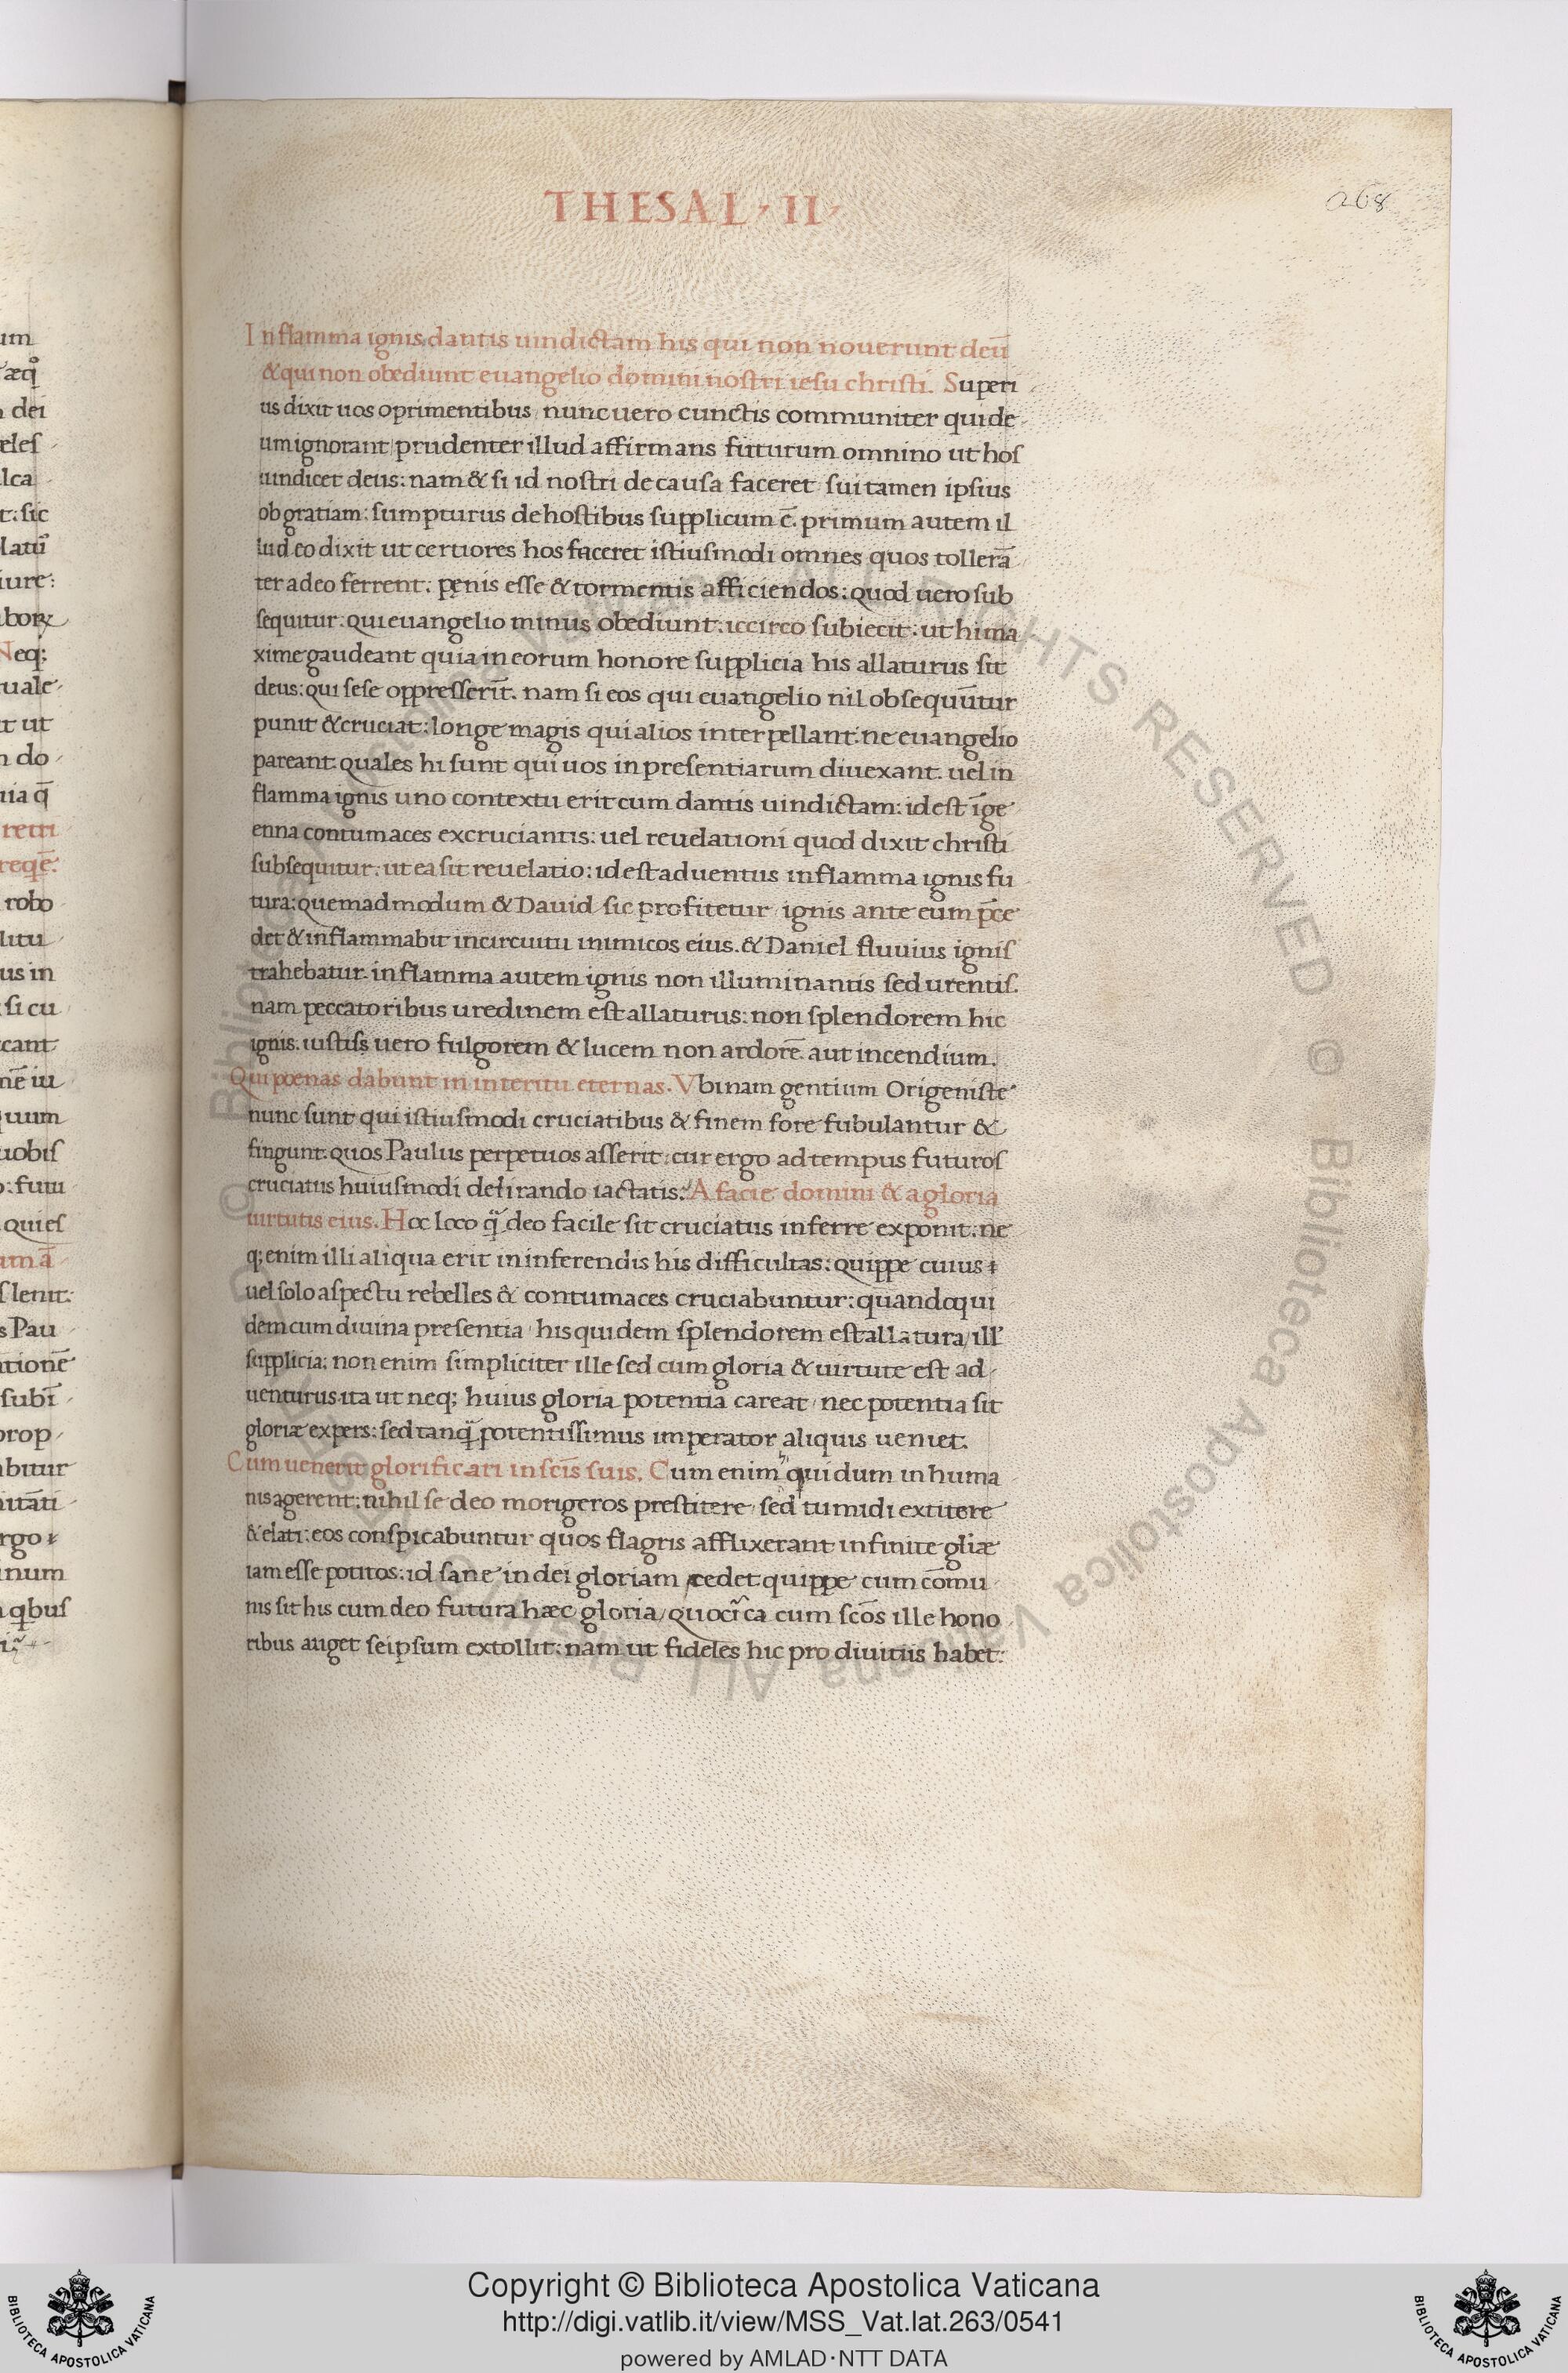 THESAL · II ·
268
In flamma ignis dantis uindictam his qui non nouerunt deū
& qui non obediunt euangelio domini nostri iesu christi. Superi
us dixit uos oprimentibus, nunc uero cunctis communiter qui de
um ignorant prudenter illud affirmans futurum omnino ut hos
uindicet deus: nam & si id nostri de causa faceret sui tamen ipsius
ob gratiam: sumpturus de hostibus supplicum ē. primum autem il
lud eo dixit ut certiores hos faceret istiusmodi omnes quos tollerā
ter adeo ferrent. pęnis esse & tormentis afficiendos: quod uero sub
sequitur. qui euangelio minus obediunt: iccirco subiecit: ut hi ma
xime gaudeant quia in eorum honore supplicia his allaturus sit
deus: qui sese oppresserīt. nam si eos qui euangelio nil obsequūtur
punit & cruciat: longe magis qui alios interpellant: ne euangelio
pareant. quales hi sunt qui uos in presentiarum diuexant. uel in
flamma ignis uno contextu erit cum dantis uindictam: id est ī ge
enna contumaces excruciantis: uel reuelationi quod dixit christi
subsequitur: ut ea sit reuelatio: id est aduentus in flamma ignis fu
tura: quemadmodum & Dauid sic profitetur, ignis ante eum p̄ce
det & inflammabit in circuitu inimicos eius. & Daniel fluuius ignis
trahebatur. in flamma autem ignis non illuminantis sed urentis.
nam peccatoribus uredinem est allaturus: non splendorem hic
ignis. iustiss uero fulgorem & lucem non ardorē aut incendium.
Qui poenas dabunt in interitu eternas. Vbinam gentium Origeniste
nunc sunt qui istiusmodi cruciatibus & finem fore fubulantur &
fingunt. quos Paulus perpetuos asserit: cur ergo ad tempus futuros
cruciatus huiusmodi delirando iactatis. A facie domini & a gloria
uirtutis eius. Hoc loco q̄ deo facile sit cruciatus inferre exponit. ne
q; enim illi aliqua erit in inferendis his difficultas: quippe cuius
uel solo aspectu rebelles & contumaces cruciabuntur: quandoqui
dem cum diuina presentia his quidem splendorem est allatura, ill'
supplicia: non enim simpliciter ille sed cum gloria & uirtute est ad
uenturus. ita ut neq; huius gloria potentia careat, nec potentia sit
gloriæ expers: sed tanq̄ potentissimus imperator aliquis ueniet.
Cum uenerit glorificari in scīs suis. Cum enim qui dum in huma
nis agerent: nihil se deo morigeros prestitere, sed tumidi extitere
& elati: eos conspicabuntur quos flagris afflixerant infinite gl'iæ
iam esse potitos: id sane in dei gloriam cedet. quippe cum cōmu
nis sit his cum deo futura hæc gloria, quocīca cum scōs ille hono
ribus auget seipsum extollit: nam ut fideles hic pro diuitiis habet.
Copyright © Biblioteca Apostolica Vaticana
http://digi.vatlib.it/view/MSS_Vat.lat.263/0541
powered by AMLAD·NTT DATA